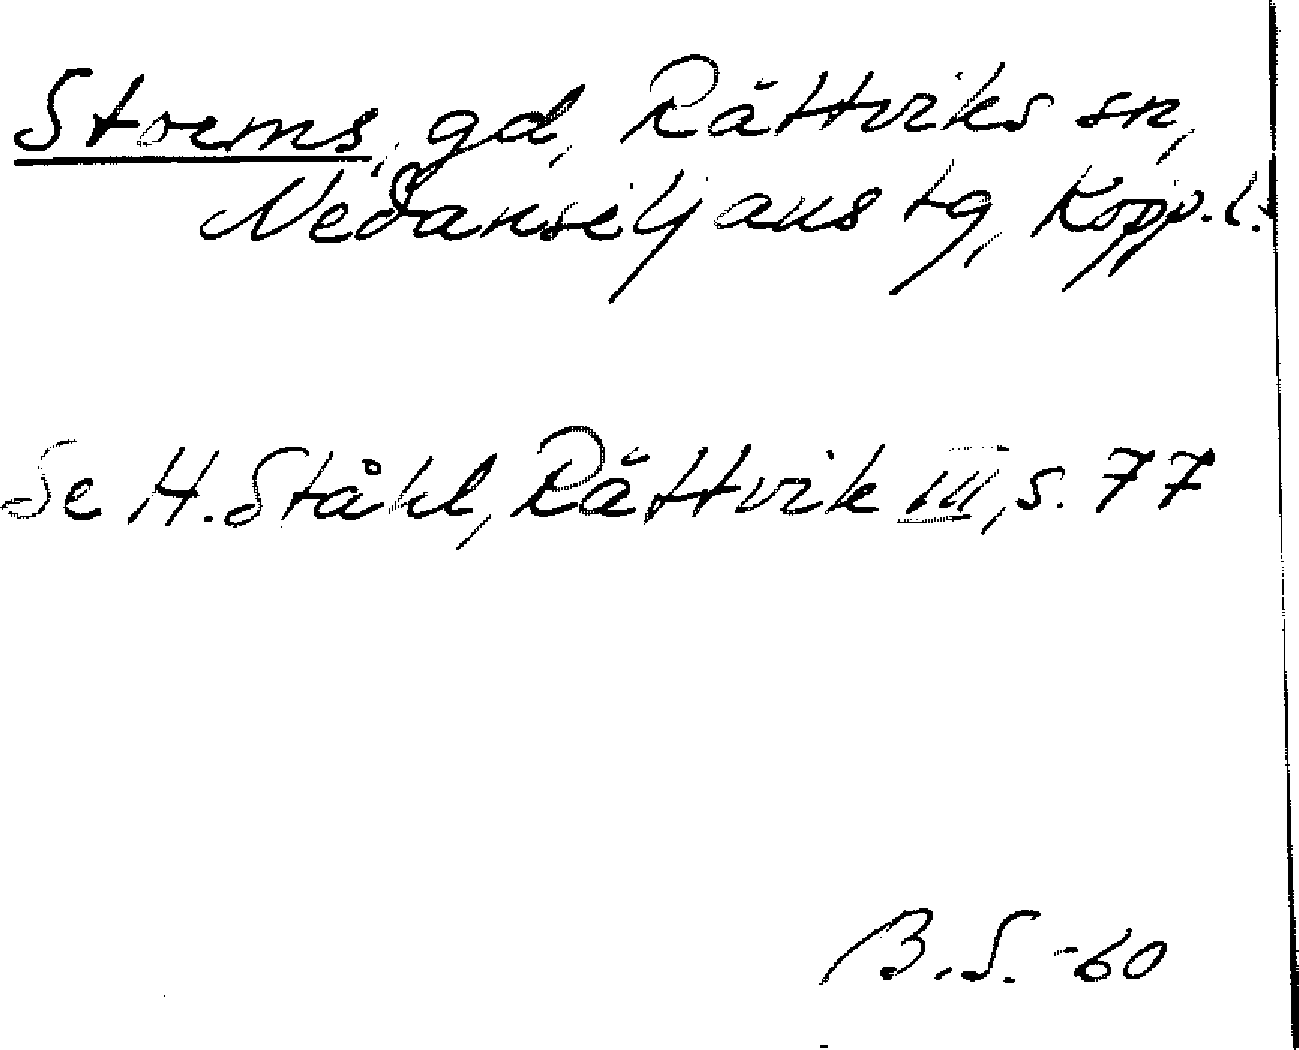 Stoems, gd, Rättviks sn,
Nedansiljans tg, Kopp. l.
Se H. Ståhl, Rättvik III, s. 77
B.S. -60